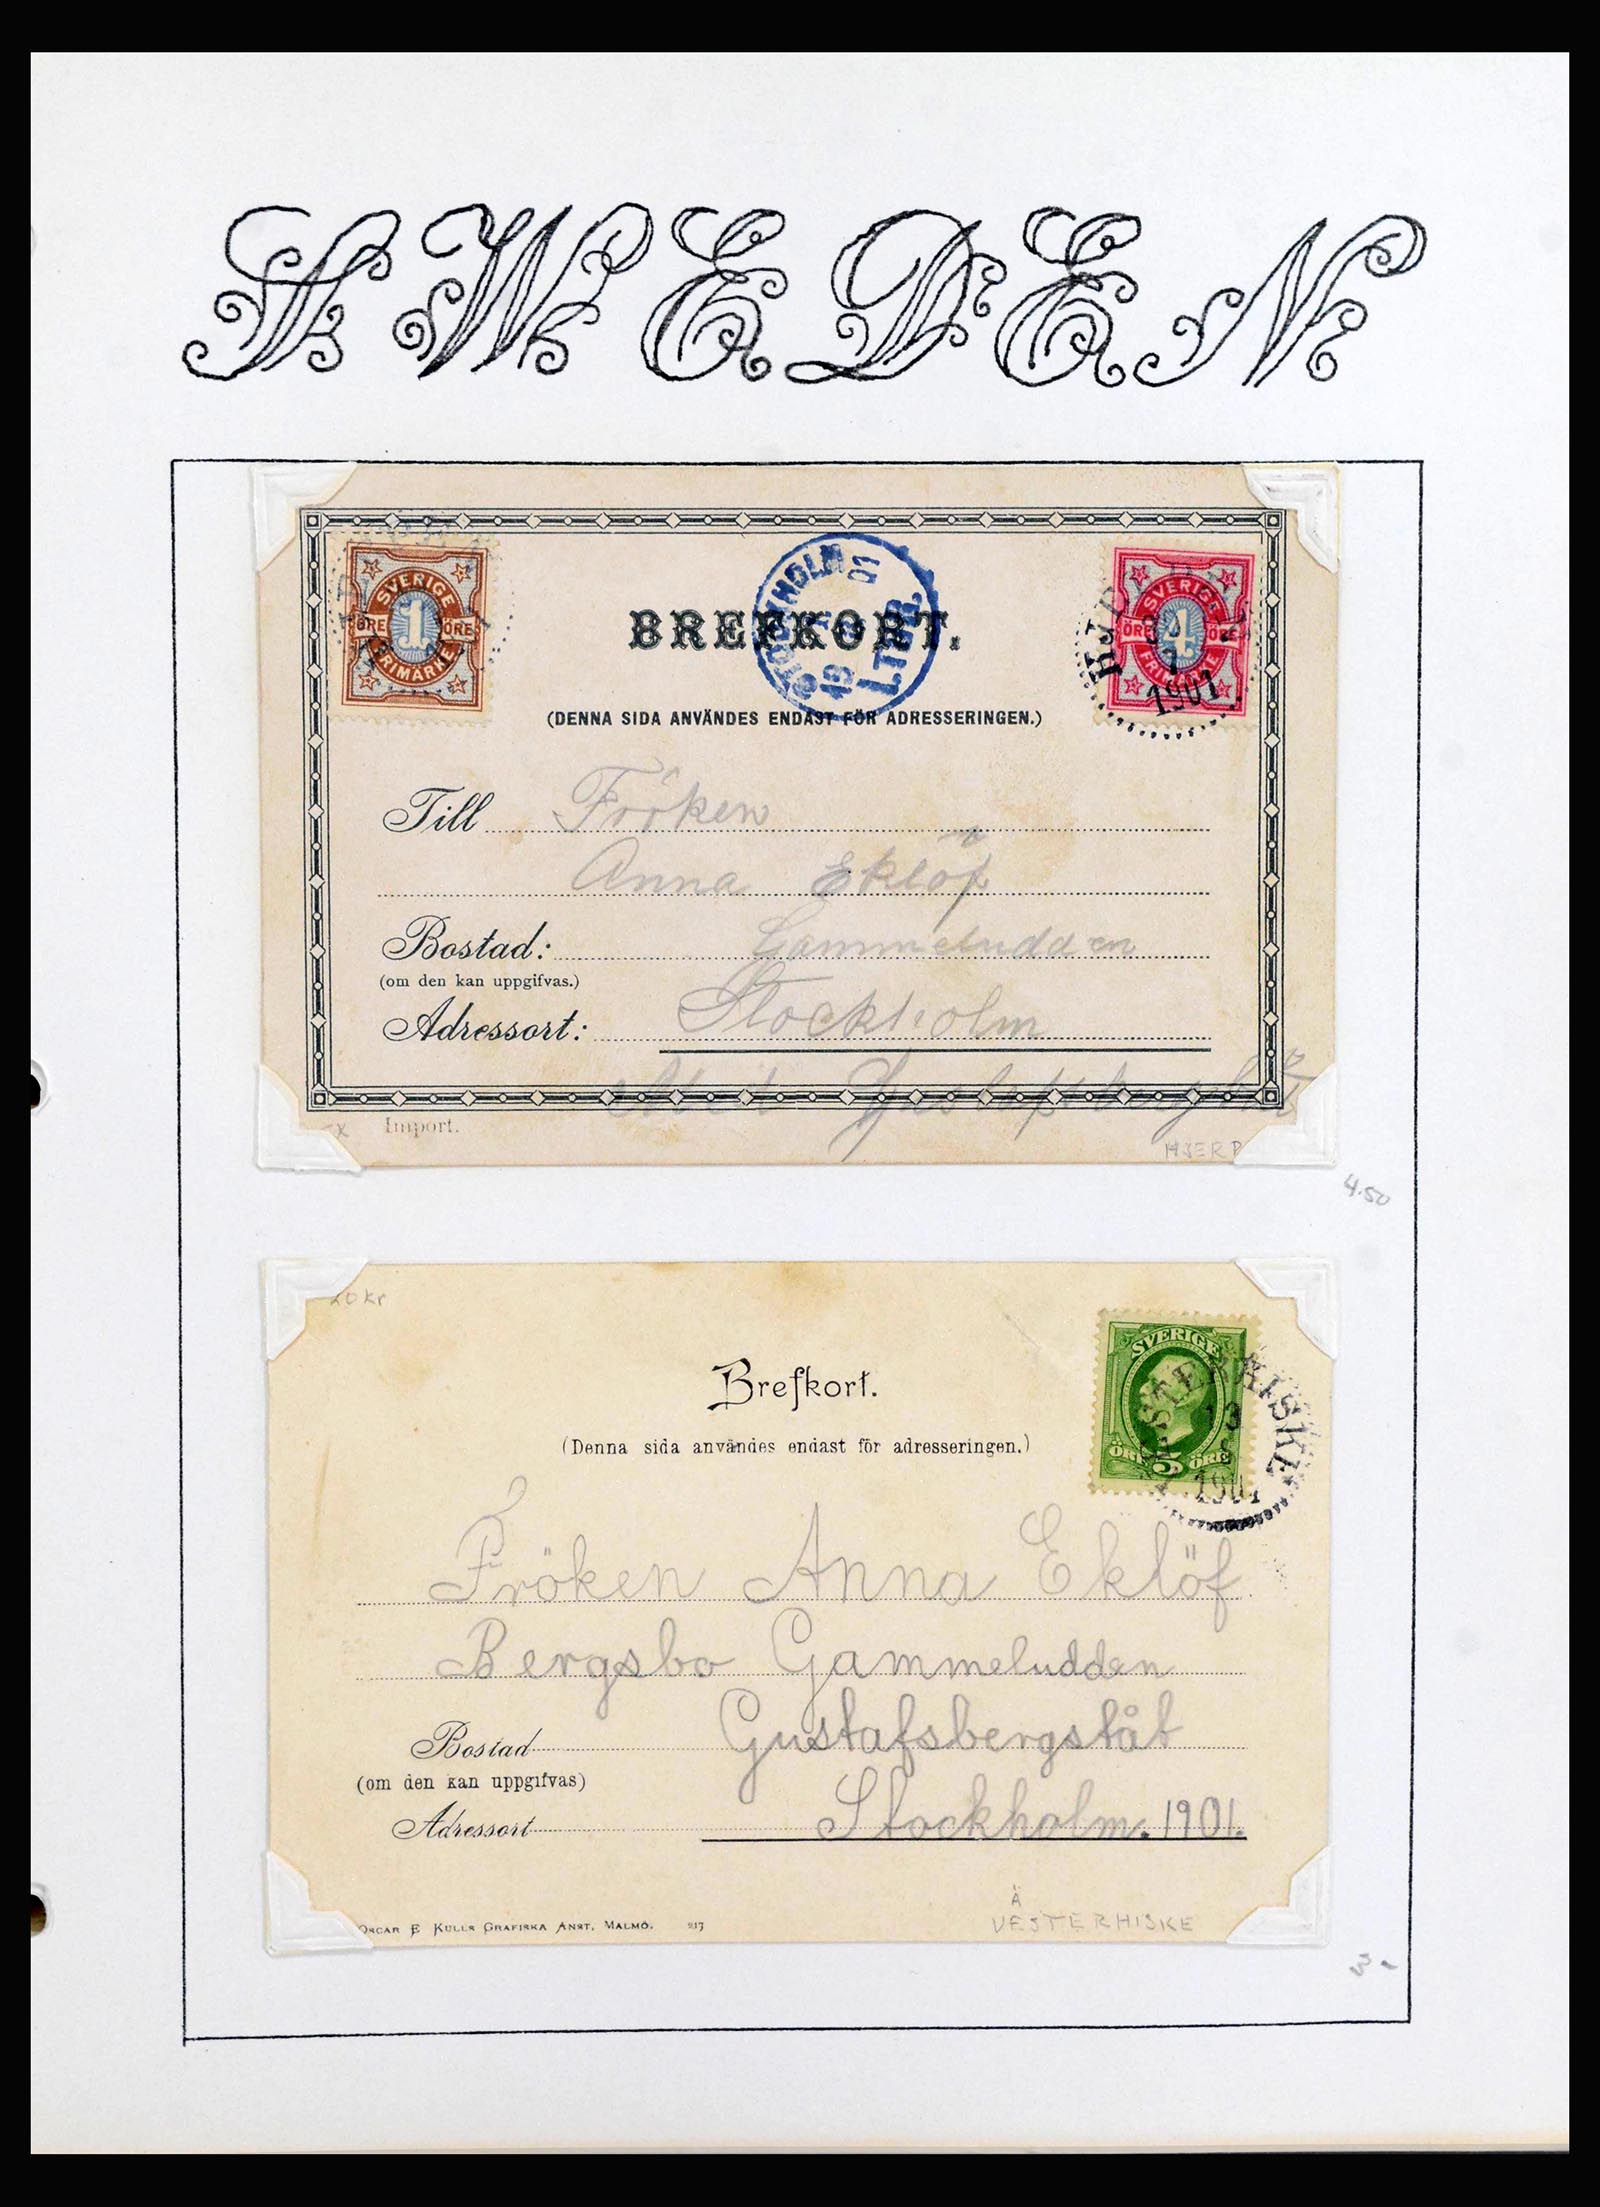 SWEDEN
SVERIGE
ÖRE 1 ÖRE
FRIMÄRKE
STOCKHOLM
LTBR.
SVERIGE
ÖRE 4 ÖRE
FRIMÄRKE
1901
BREFKORT.
(DENNA SIDA ANVÄNDES ENDAST FÖR ADRESSERINGEN.)
Till Fröken
Anna Eklöf
Bostad: Gammeludden
(om den kan uppgifvas.)
Adressort: Stockholm
Import.
HJERP
4.50
20 kr
SVERIGE
ÖRE 5 ÖRE
VESTERHISKE
13
1901
Brefkort.
(Denna sida användes endast för adresseringen.)
Fröken Anna Eklöf
Bergsbo Gammeludden
Bostad Gustafsbergsbåt
(om den kan uppgifvas)
Adressort Stockholm. 1901.
OSCAR E KULLS GRAFISKA ANST, MALMÖ. 217
Ä
VESTERHISKE
3 -